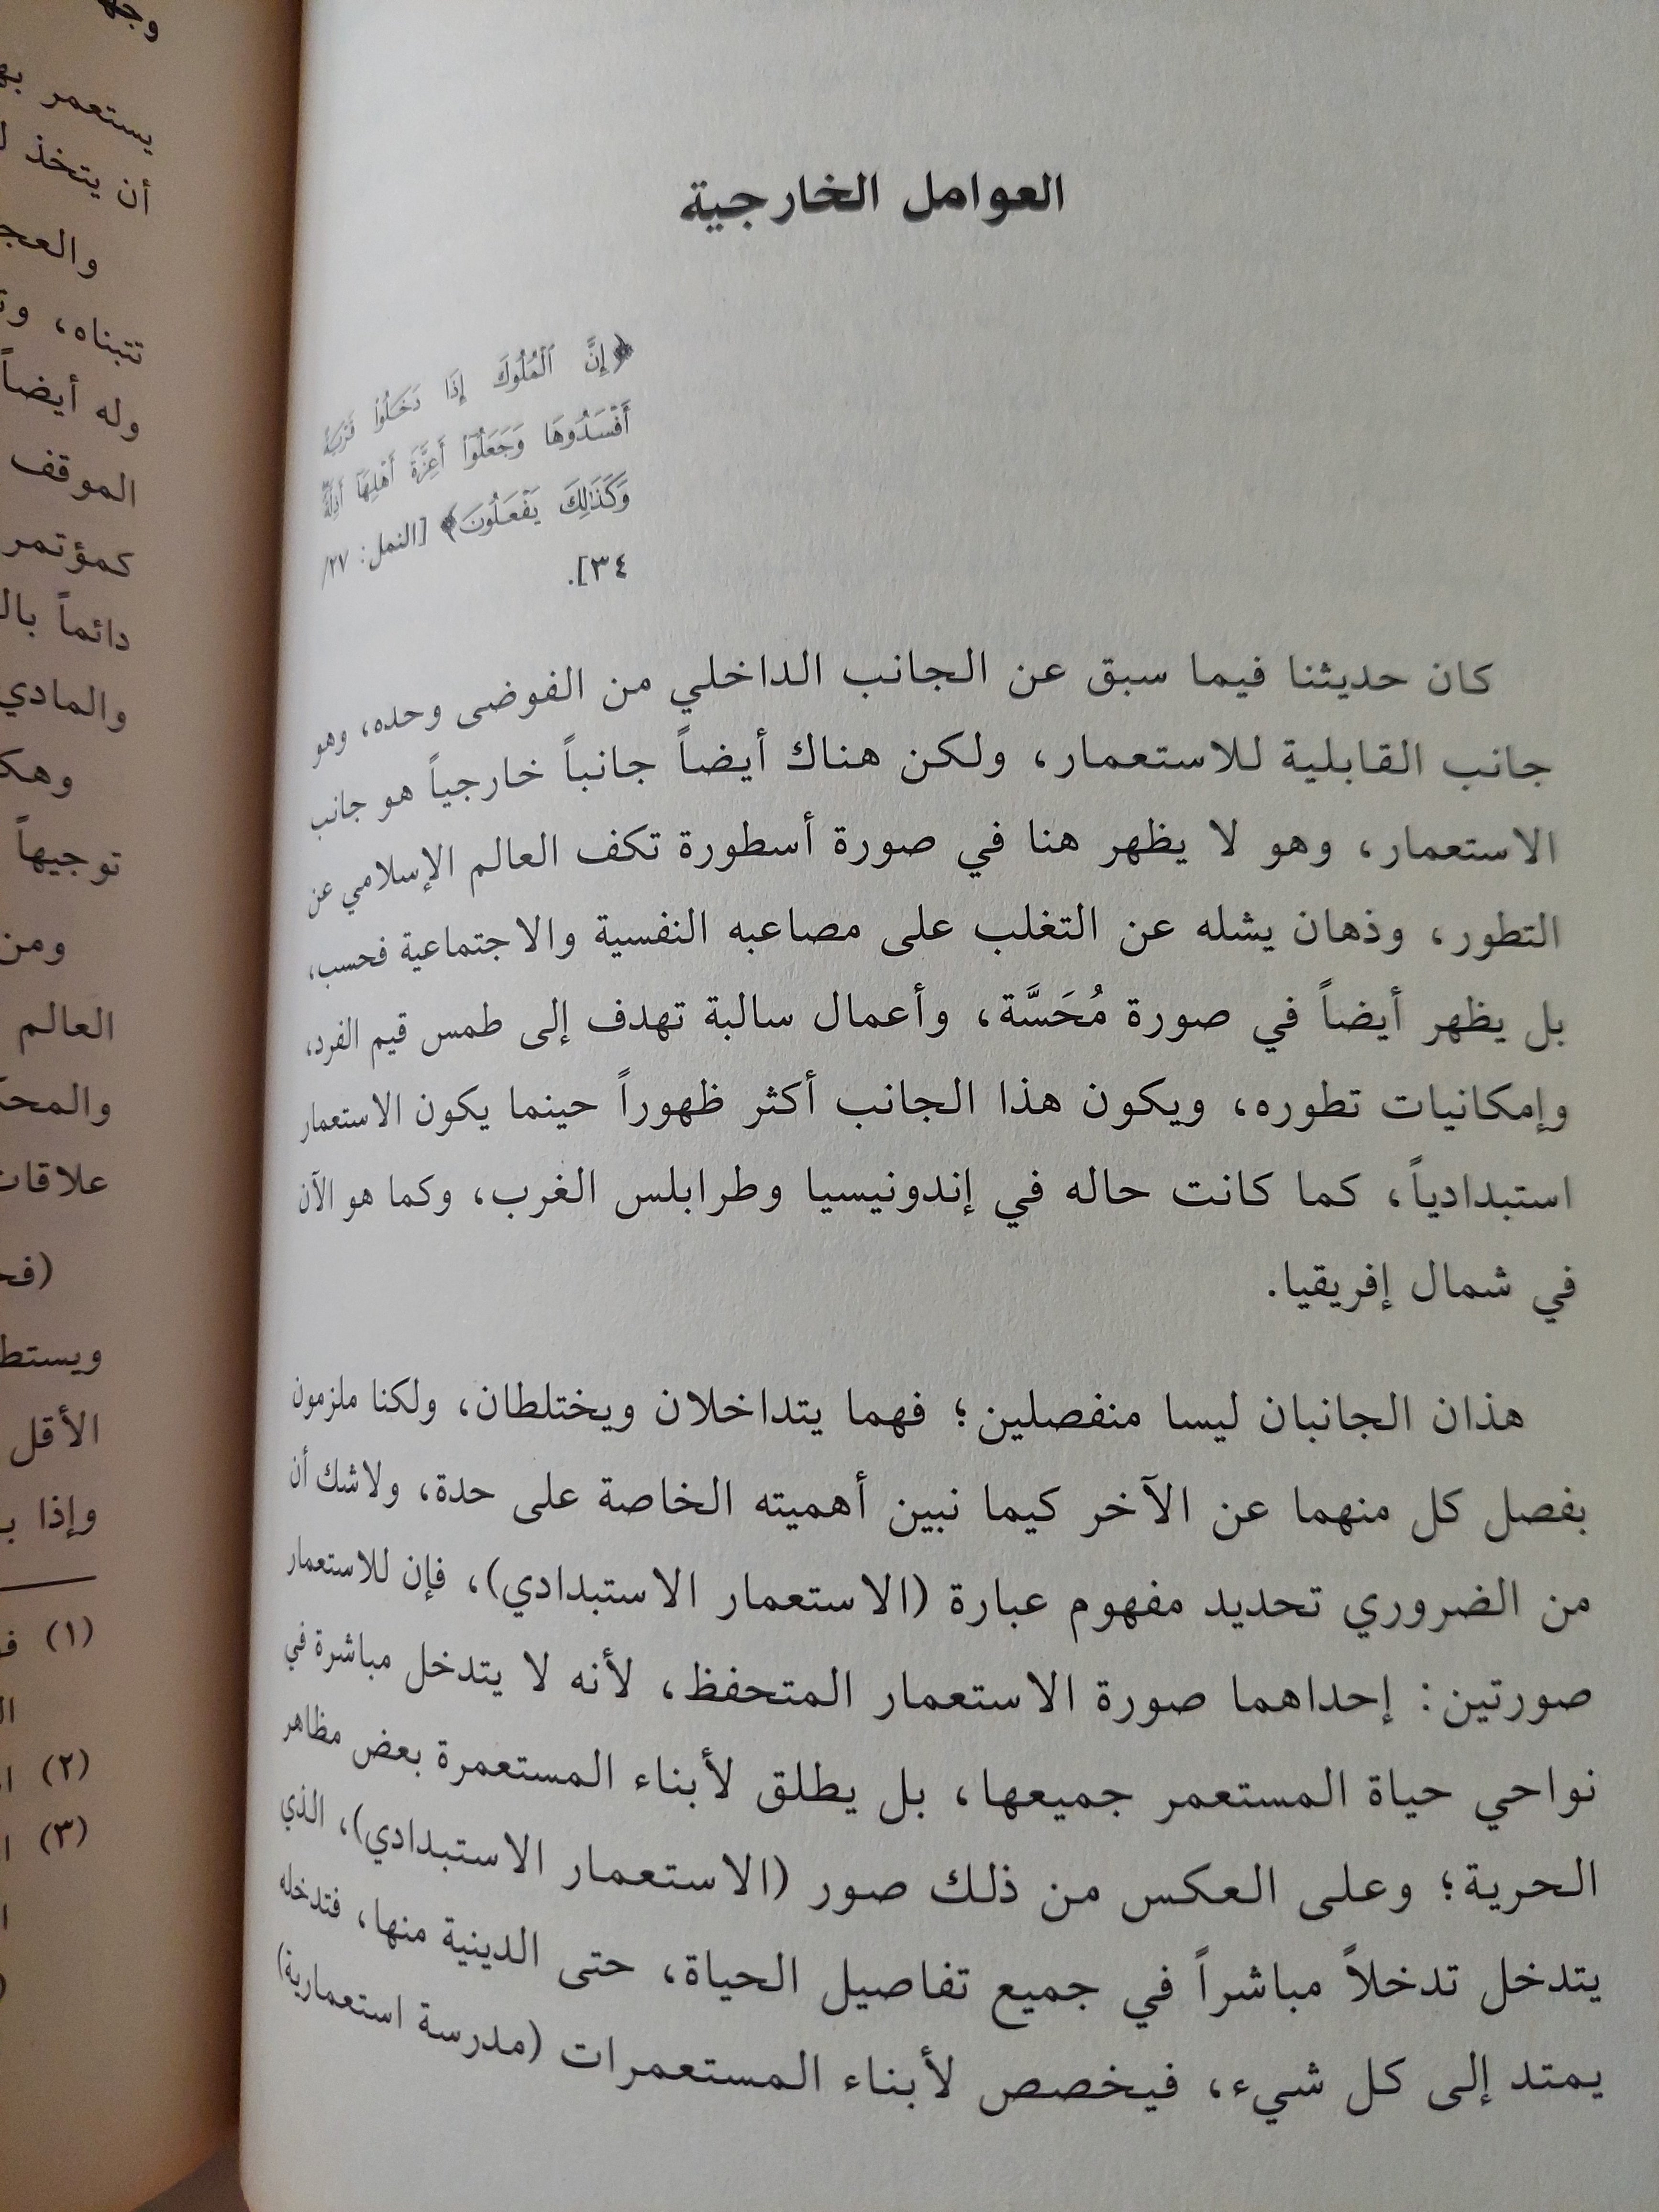 العوامل الخارجية
﴿إِنَّ ٱلْمُلُوكَ إِذَا دَخَلُواْ قَرْيَةً
أَفْسَدُوهَا وَجَعَلُوٓاْ أَعِزَّةَ أَهْلِهَآ أَذِلَّةً
وَكَذَٰلِكَ يَفْعَلُونَ﴾ [النمل: ٢٧/
٣٤].
كان حديثنا فيما سبق عن الجانب الداخلي من الفوضى وحده، وهو
جانب القابلية للاستعمار، ولكن هناك أيضاً جانباً خارجياً هو جانب
الاستعمار، وهو لا يظهر هنا في صورة أسطورة تكف العالم الإسلامي عن
التطور، وذهان يشله عن التغلب على مصاعبه النفسية والاجتماعية فحسب،
بل يظهر أيضاً في صورة مُحَسَّة، وأعمال سالبة تهدف إلى طمس قيم الفرد،
وإمكانيات تطوره، ويكون هذا الجانب أكثر ظهوراً حينما يكون الاستعمار
استبدادياً، كما كانت حاله في إندونيسيا وطرابلس الغرب، وكما هو الآن
في شمال إفريقيا.
هذان الجانبان ليسا منفصلين؛ فهما يتداخلان ويختلطان، ولكنا ملزمون
بفصل كل منهما عن الآخر كيما نبين أهميته الخاصة على حدة، ولاشك أن
من الضروري تحديد مفهوم عبارة (الاستعمار الاستبدادي)، فإن للاستعمار
صورتين: إحداهما صورة الاستعمار المتحفظ، لأنه لا يتدخل مباشرة في
نواحي حياة المستعمر جميعها، بل يطلق لأبناء المستعمرة بعض مظاهر
الحرية؛ وعلى العكس من ذلك صور (الاستعمار الاستبدادي)، الذي
يتدخل تدخلاً مباشراً في جميع تفاصيل الحياة، حتى الدينية منها، فتدخله
يمتد إلى كل شيء، فيخصص لأبناء المستعمرات (مدرسة استعمارية)
يستعمر
أن يتخذ
تتبناه،
وله أيضاً
الموقف
كمؤتمر
دائماً
والمادي
توجيهاً
العالم
الأقل
وإذا
(١)
(٢)
(٣)